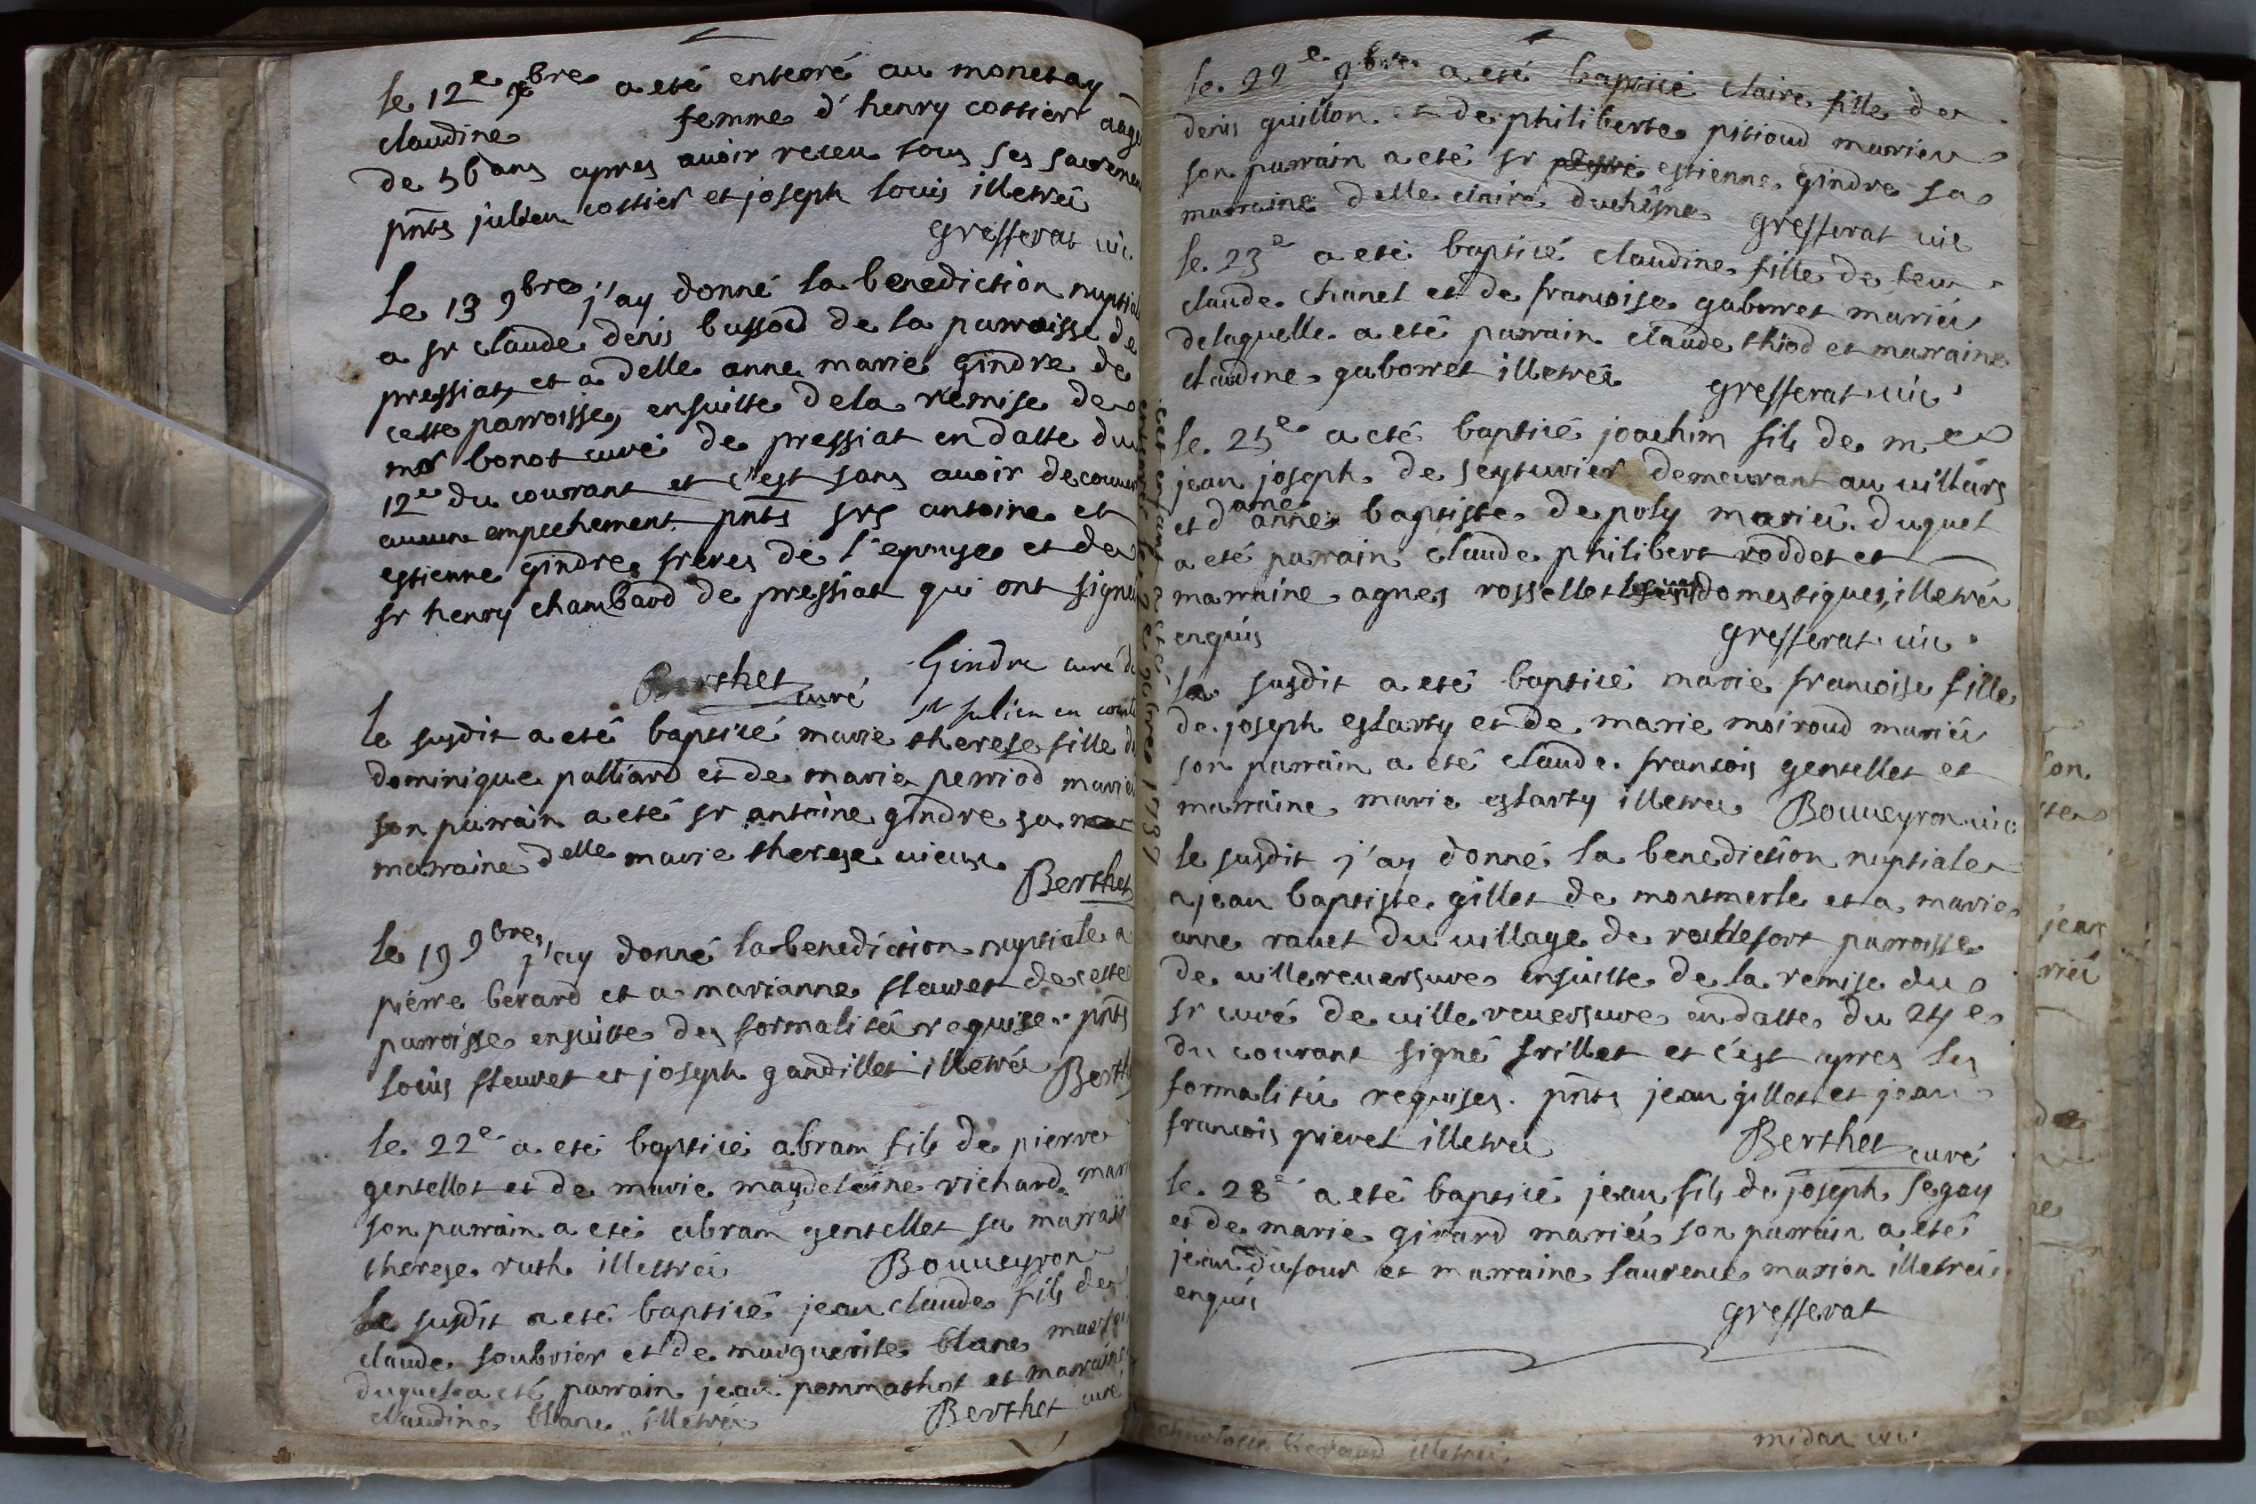 le 12e 9bre a eté enterré au monetay
claudine femme d'henry cottier aagé
de 56 ans apres avoir receu tous ses sacremen
pnts julien cottier et joseph louis illetréz
gresserat vic.
Le 13 9bre j'ay donné la benediction nuptial
a sr claude denis bussod de la parroisse de
pressiat, et a delle anne marie gindre de
cette parroisse, ensuitte dela remise de
mr bonot curé de pressiat en datte du
12e du courant et c'est sans avoir decouvert
aucun empechement pnts srs antoine et
estienne gindre freres de l'epouse et de
sr henry chambard de pressiat qui ont signé
Gindre curé de
Berthet curé
st julien en comté
le susdit a eté baptisé marie therese fille de
dominique palliard et de marie perriod mariéz
son parrain a eté sr antoine gindre sa
marraine delle marie therese vieux
Berthet
le 19 9bre j'ay donné la benediction nuptiale a
pierre berard et a marianne fleuret de cette
parroisse ensuitte des formalitéz requise. pnts
louis fleuret et joseph gandillet illetréz Berth
le 22e a eté baptisé abram fils de pierre
gentellet et de marie magdeleine richard mari
son parrain a eté abram gentellet sa marrai
therese ruth illettréz Bouveyron
le susdit a eté baptisé jean claude fils de
claude soubrier et de marguerite blanc
duquel a eté parrain jean pommathiot et marraine
claudine blanc illetréz Berthet curé
le 22e 9bre a eté baptisé claire fille de
denis guillon et de philiberte pitioud mariéz
son parrain a eté sr estienne gindre sa
marraine delle claire duchêne gresserat vic
le 23e a eté baptisé claudine fille de feu
claude chanel et de francoise gaborret mariéz
delaquelle a eté parrain claude thiod et marraine
claudine gaborret illetréz gresserat vic
le 25e a eté baptisé joachim fils de mre
jean joseph de seyturier demeurant au villars
et dame anne baptiste de poly mariéz. duquel
a eté parrain claude philibert roddet et
marraine agnes rossellet domestiques, illetréz
enquis gresserat vic
cet enfant a eté enterré le 2e xbre 1737
le susdit a eté baptisé marie francoise fille
de joseph eslarty et de marie moiroud mariéz
son parrain a eté claude francois gentellet et
marraine marie eslarty illetréz Bouveyron vic
le susdit j'ay donné la benediction nuptiale
a jean baptiste gillet de montmerle et a marie
anne ravet du village de rochefort parroisse
de villereversure ensuitte de la remise du
sr curé de ville reversure en datte du 24e
du courant signé frillet et c'est apres les
formalitéz requises. pnts jean gillet et jean
francois pievet illetréz Berthet curé
le 28e a eté baptisé jean fils de joseph segay
et de marie girard mariéz son parrain a eté
jean dufour et marraine laurence marion illetréz
enquis gresserat